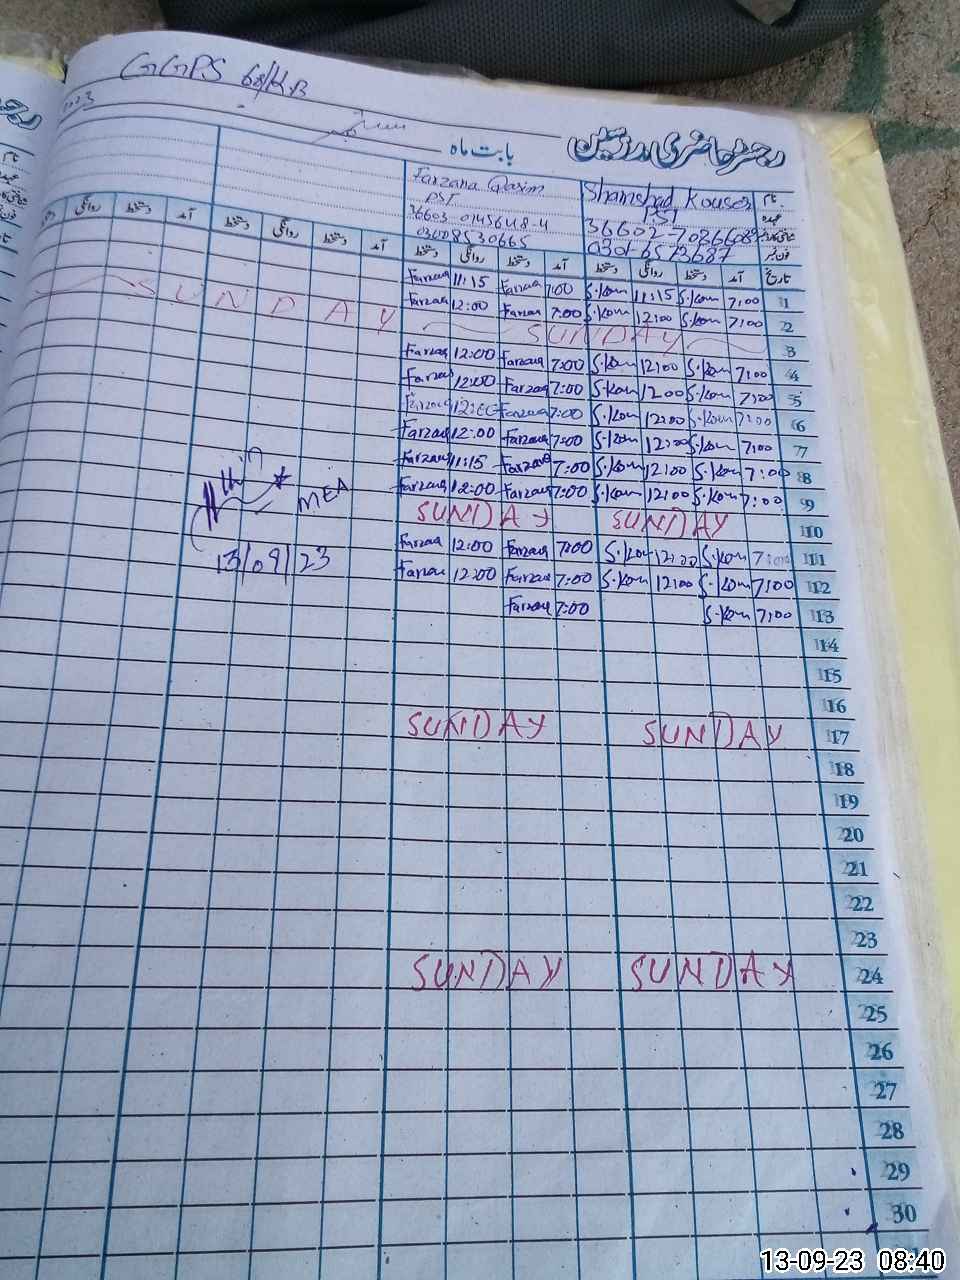 GGPS 68/KB
2023
رجسٹر حاضری مدرسین
بابت ماہ ستمبر
نام Shamshad Kouser Farzana Qasim
عہدہ PST PST
36603-0145648-4
فون نمبر 0301-6573687 03008530665
تاریخ آمد دستخط روانگی دستخط آمد دستخط روانگی دستخط آمد دستخط روانگی دستخط آمد دستخط روانگی
1 7:00 S.Kou 11:15 S.Kou 7:00 Farzana 11:15 Farzana
2 7:00 S.Kou 12:00 S.Kou 7:00 Farzana 12:00 Farzana
3 SUNDAY SUNDAY
4 7:00 S.Kou 12:00 S.Kou 7:00 Farzana 12:00 Farzana
5 7:00 S.Kou 12:00 S.Kou 7:00 Farzana 12:00 Farzana
6 7:00 S.Kou 12:00 S.Kou 7:00 Farzana 12:00 Farzana
7 7:00 S.Kou 12:00 S.Kou 7:00 Farzana 12:00 Farzana
8 7:00 S.Kou 12:00 S.Kou 7:00 Farzana 11:15 Farzana
9 7:00 S.Kou 12:00 S.Kou 7:00 Farzana 12:00 Farzana
10 SUNDAY SUNDAY
11 S.Kou 12:00 S.Kou 7:00 Farzana 12:00 Farzana
12 7:00 S.Kou 12:00 S.Kou 7:00 Farzana 12:00 Farzana
13 7:00 S.Kou 7:00 Farzana
MEA
13/09/23
14
15
16
17 SUNDAY SUNDAY
18
19
20
21
22
23
24 SUNDAY SUNDAY
25
26
27
28
29
30
13-09-23 08:40